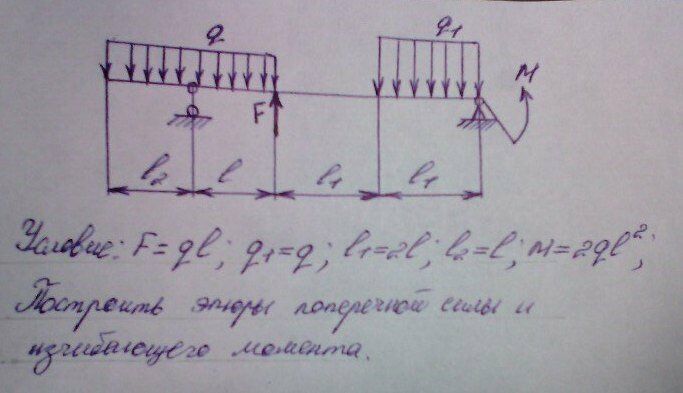 q q₁
M
F
l₂ l l₁ l₁
Условие: F=ql; q₁=q; l₁=2l; l₂=l; M=2ql²;
Построить эпюры поперечной силы и
изгибающего момента.